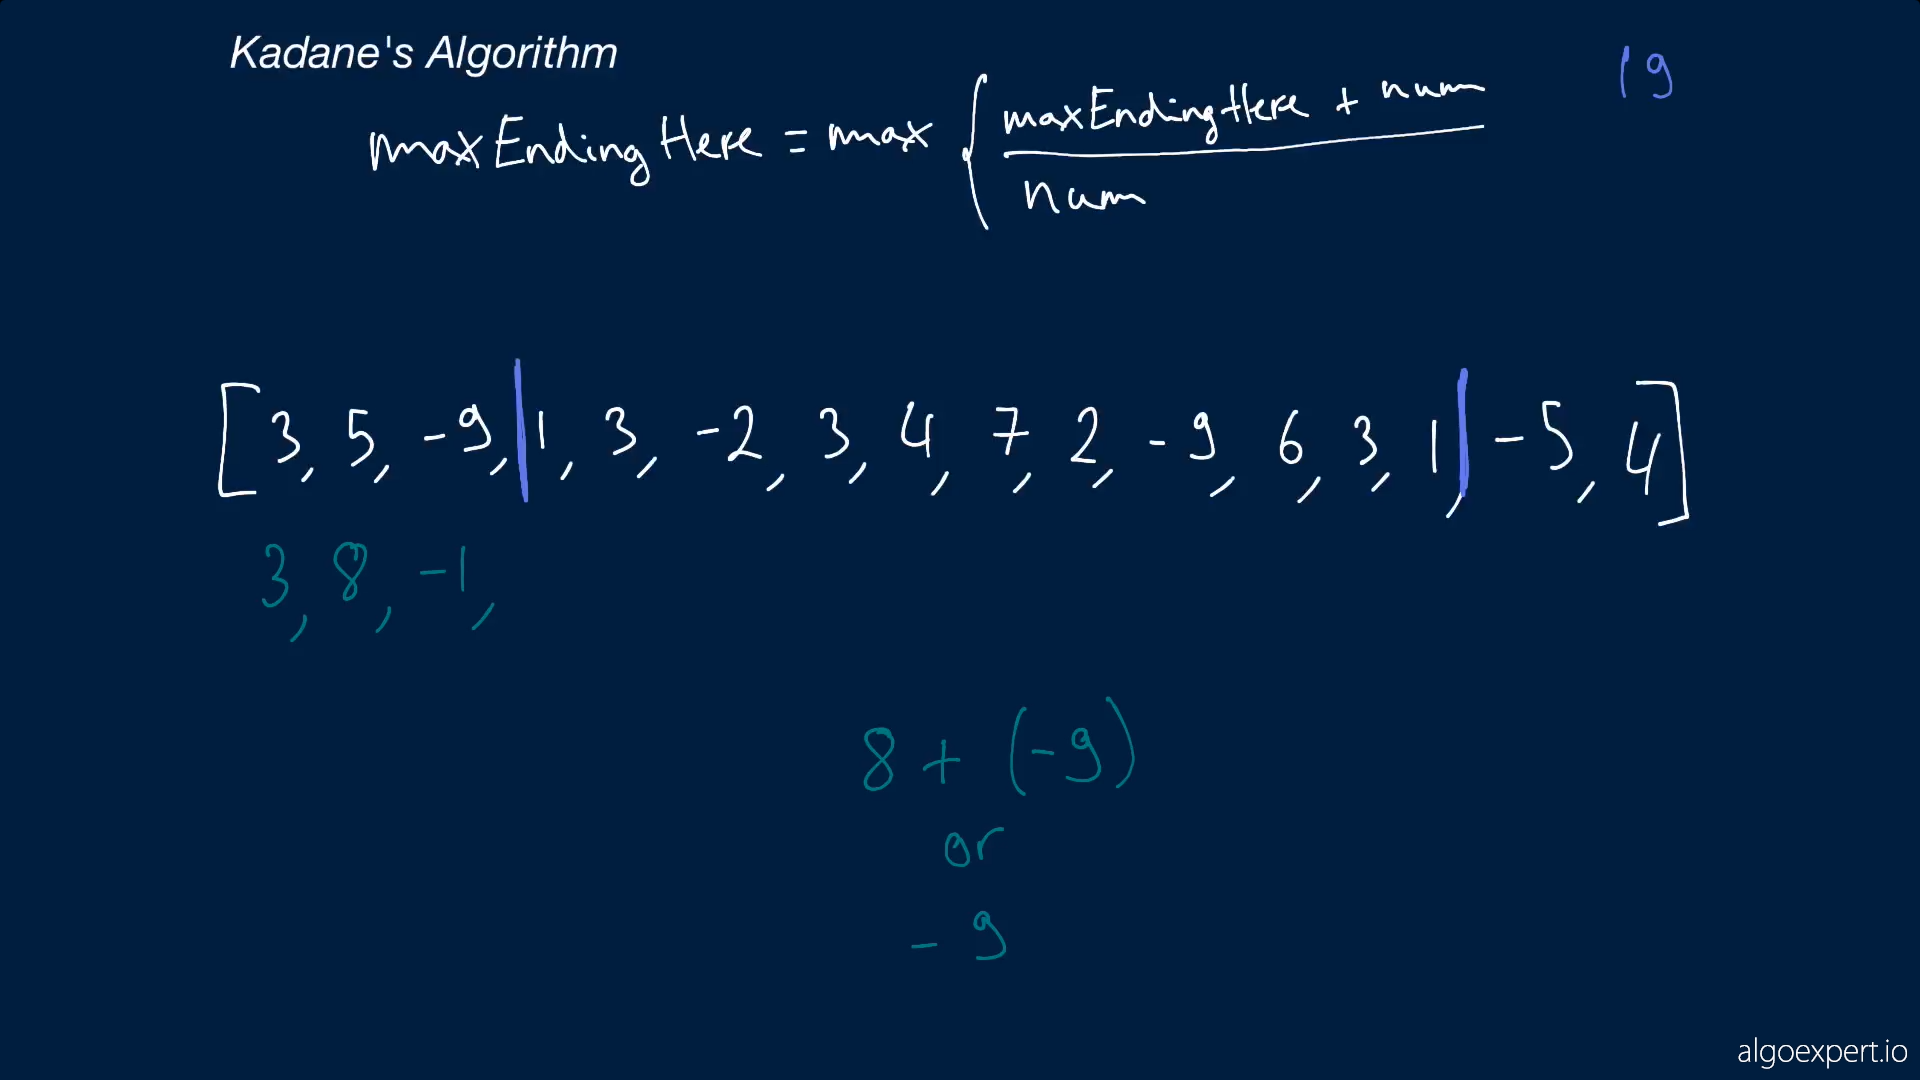 Kadane's Algorithm
19
maxEndingHere = max { maxEndingHere + num
num
[3, 5, -9, | 1, 3, -2, 3, 4, 7, 2, -9, 6, 3, 1, | -5, 4]
3, 8, -1,
8 + (-9)
or
-9
algoexpert.io